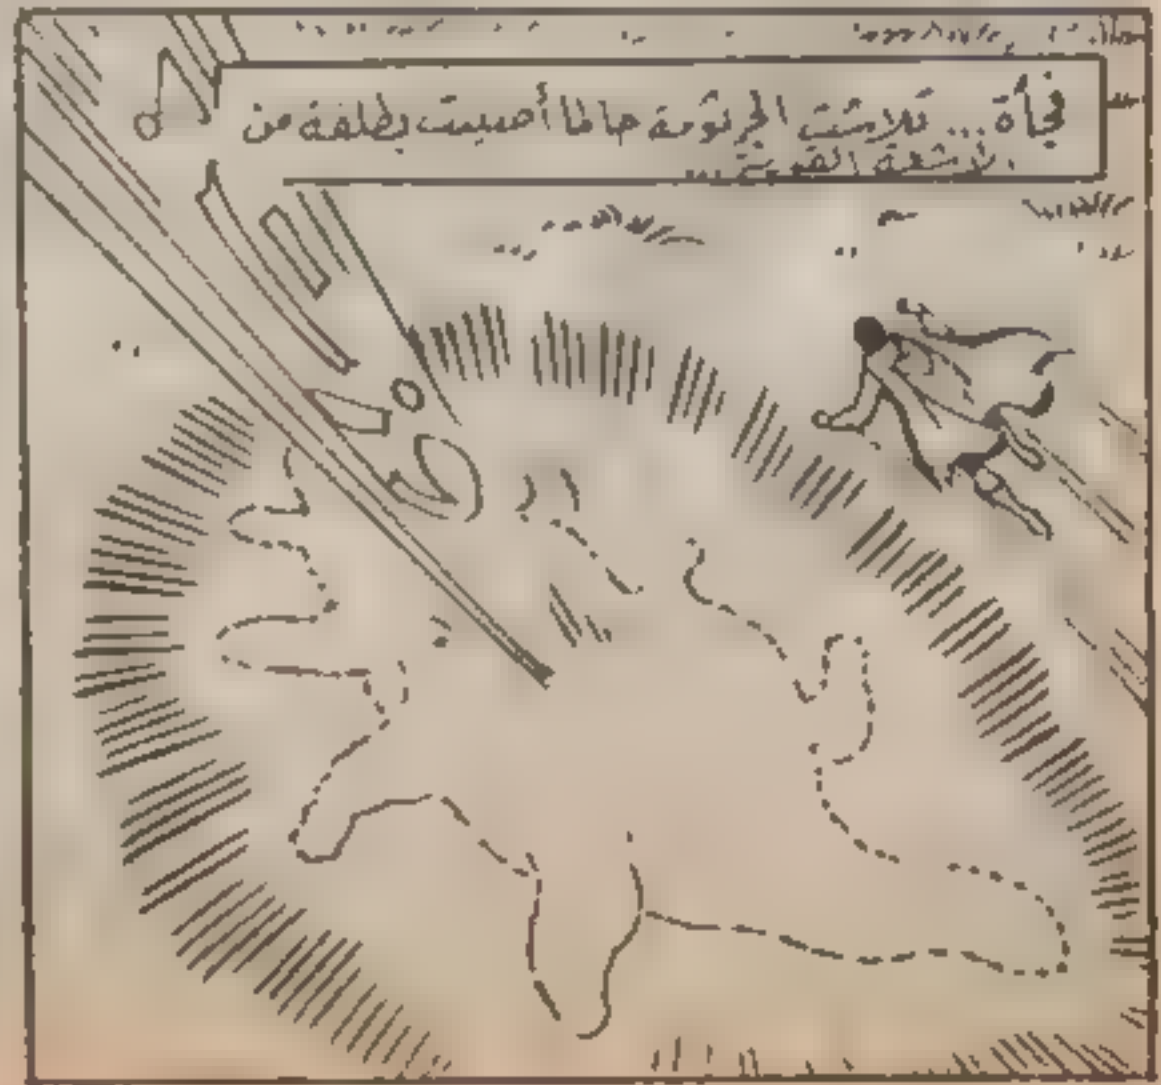 فجأة... تلاشت الجرثومة حالما أصيبت بطلقة من
الأشعة القوية...